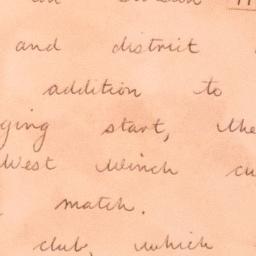 and district
addition to
ging start, the
West Winch cu
match.
club, which